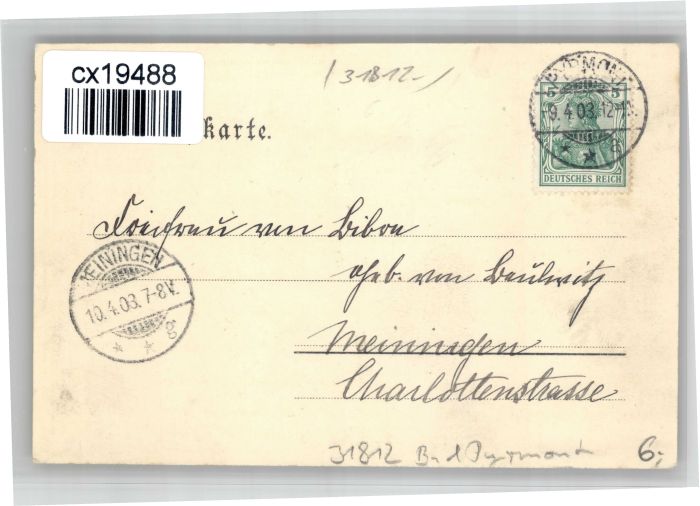 cx19488
(31812.-)
karte.
PYRMONT
9.4.03.12-1
5 5
DEUTSCHES REICH
Freifrau von Bibra
geb. von Beulwitz
MEININGEN
10.4.03.7-8V.
g
Meiningen
Charlottenstrasse
31812 Bad Pyrmont 6.-